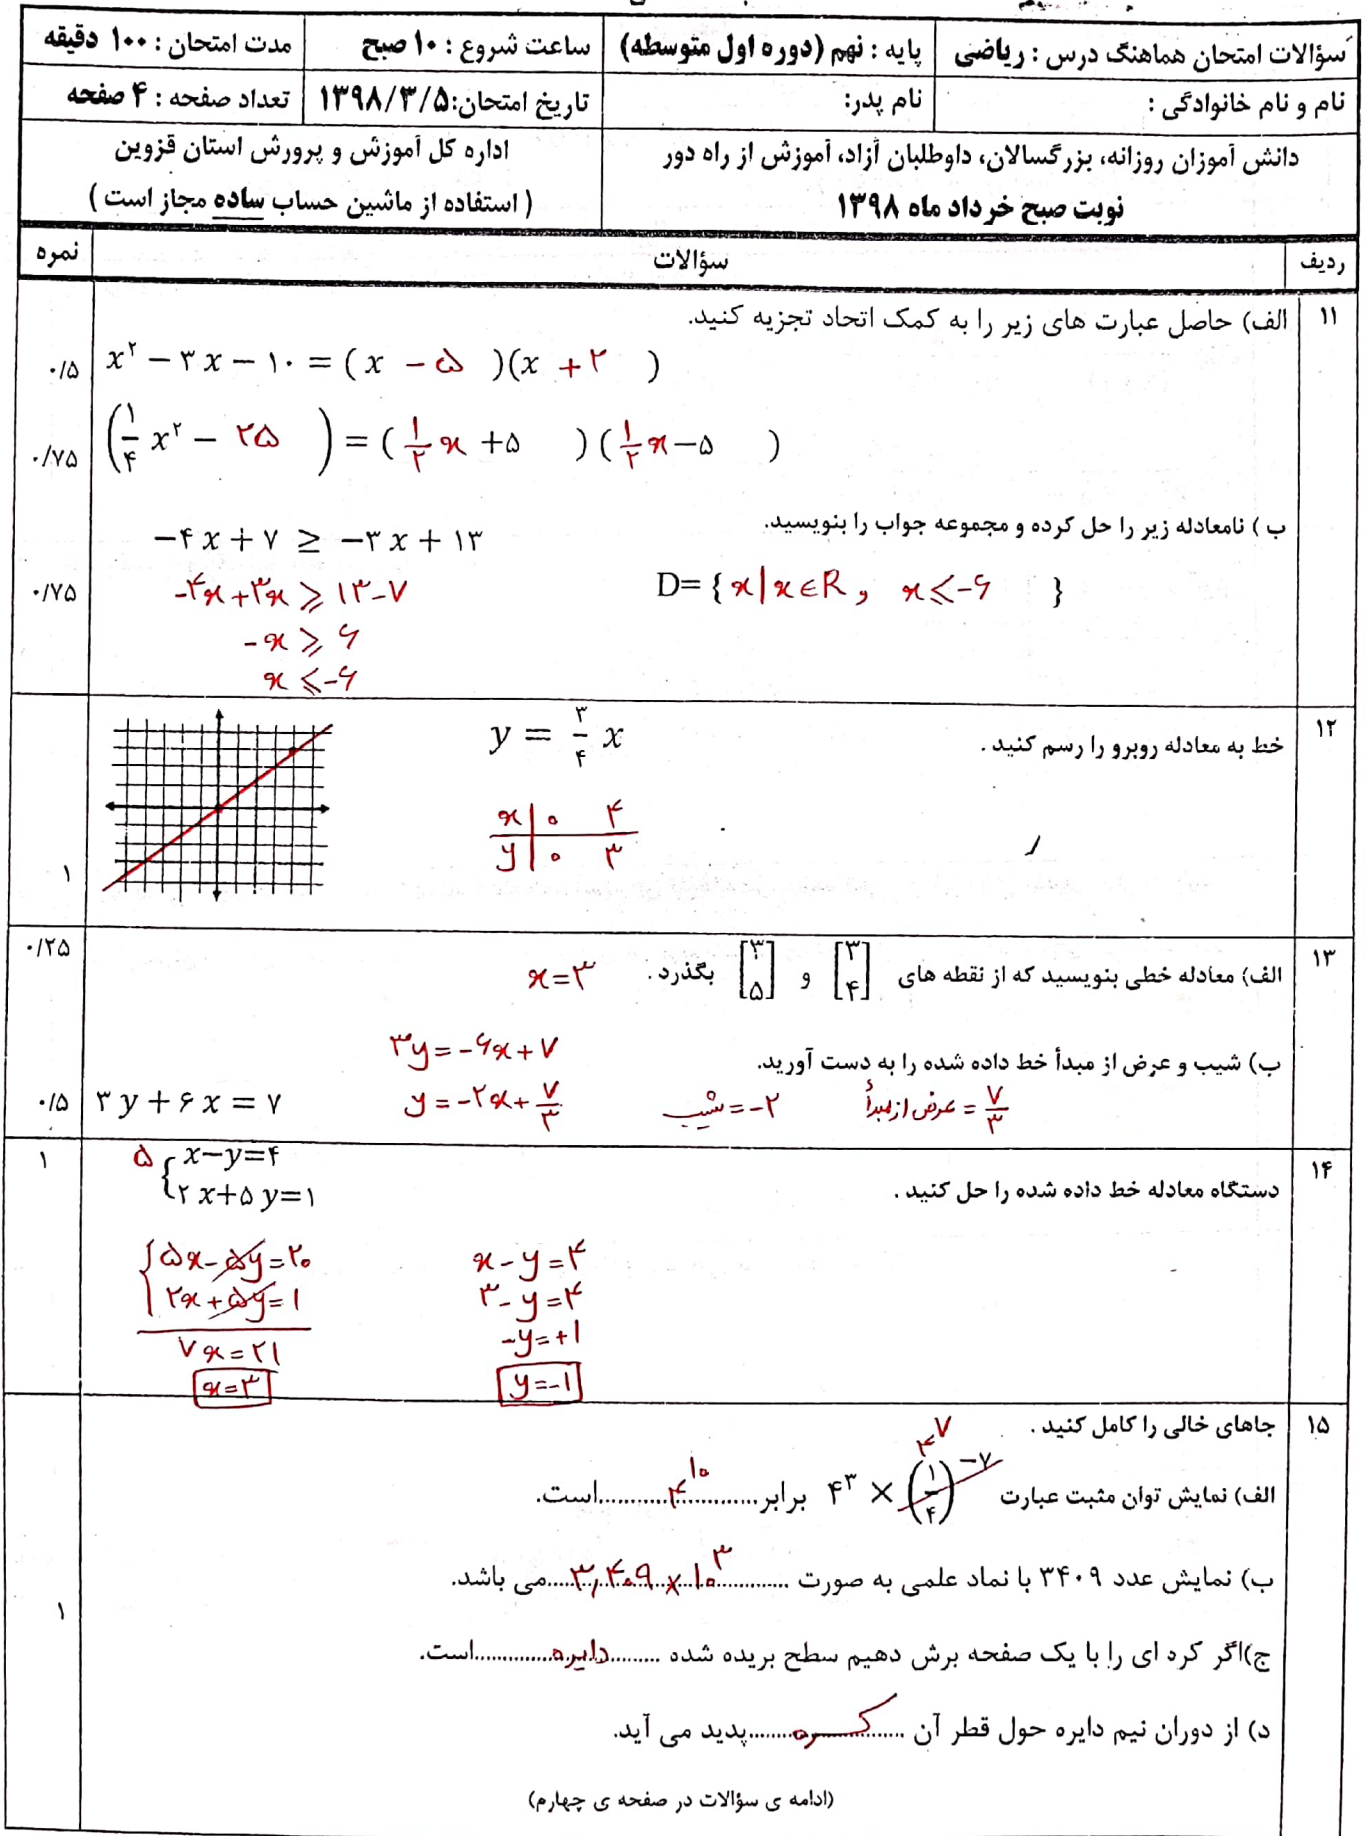 سؤالات امتحان هماهنگ درس : ریاضی
پایه : نهم (دوره اول متوسطه)
ساعت شروع : ۱۰ صبح
مدت امتحان : ۱۰۰ دقیقه
نام و نام خانوادگی :
نام پدر:
تاریخ امتحان:۱۳۹۸/۳/۵
تعداد صفحه : ۴ صفحه
دانش آموزان روزانه، بزرگسالان، داوطلبان آزاد، آموزش از راه دور
نوبت صبح خرداد ماه ۱۳۹۸
اداره کل آموزش و پرورش استان قزوین
( استفاده از ماشین حساب ساده مجاز است )
ردیف سؤالات نمره
۱۱ الف) حاصل عبارت های زیر را به کمک اتحاد تجزیه کنید.
x² − ۳x − ۱۰ = (x − ۵ )(x + ۲ ) ۰/۵
(۱/۴ x² − ۲۵ ) = ( ۱/۲ x +۵ )( ۱/۲ x −۵ ) ۰/۷۵
ب ) نامعادله زیر را حل کرده و مجموعه جواب را بنویسید.
−۴x + ۷ ≥ −۳x + ۱۳
D= { x | x ∈ R , x ≤ −۶ } ۰/۷۵
−۴x + ۳x ≥ ۱۳ − ۷
−x ≥ ۶
x ≤ −۶
۱۲ خط به معادله روبرو را رسم کنید . y = ۳/۴ x
x | ۰ ۴
y | ۰ ۳
۱
۱۳ الف) معادله خطی بنویسید که از نقطه های [۳ ۴] و [۳ ۵] بگذرد . x=۳ ۰/۲۵
ب) شیب و عرض از مبدأ خط داده شده را به دست آورید.
۳y = −۶x + ۷
۳y + ۶x = ۷ ۰/۵
y = −۲x + ۷/۳
شیب = −۲
عرض از مبدأ = ۷/۳
۱۴ دستگاه معادله خط داده شده را حل کنید . ۱
۵ { x−y=۴
۲x+۵y=۱
{ ۵x − ۵y = ۲۰
۲x + ۵y = ۱
۷x = ۲۱
x=۳
x − y = ۴
۳ − y = ۴
−y = +۱
y = −۱
۱۵ جاهای خالی را کامل کنید .
الف) نمایش توان مثبت عبارت ۴³ × (۱/۴)⁻⁷ ۴⁷ برابر ............۴¹⁰............است.
ب) نمایش عدد ۳۴۰۹ با نماد علمی به صورت ............۳٫۴۰۹ × ۱۰³............می باشد.
۱
ج)اگر کره ای را با یک صفحه برش دهیم سطح بریده شده ............دایره............است.
د) از دوران نیم دایره حول قطر آن ............کره............پدید می آید.
(ادامه ی سؤالات در صفحه ی چهارم)